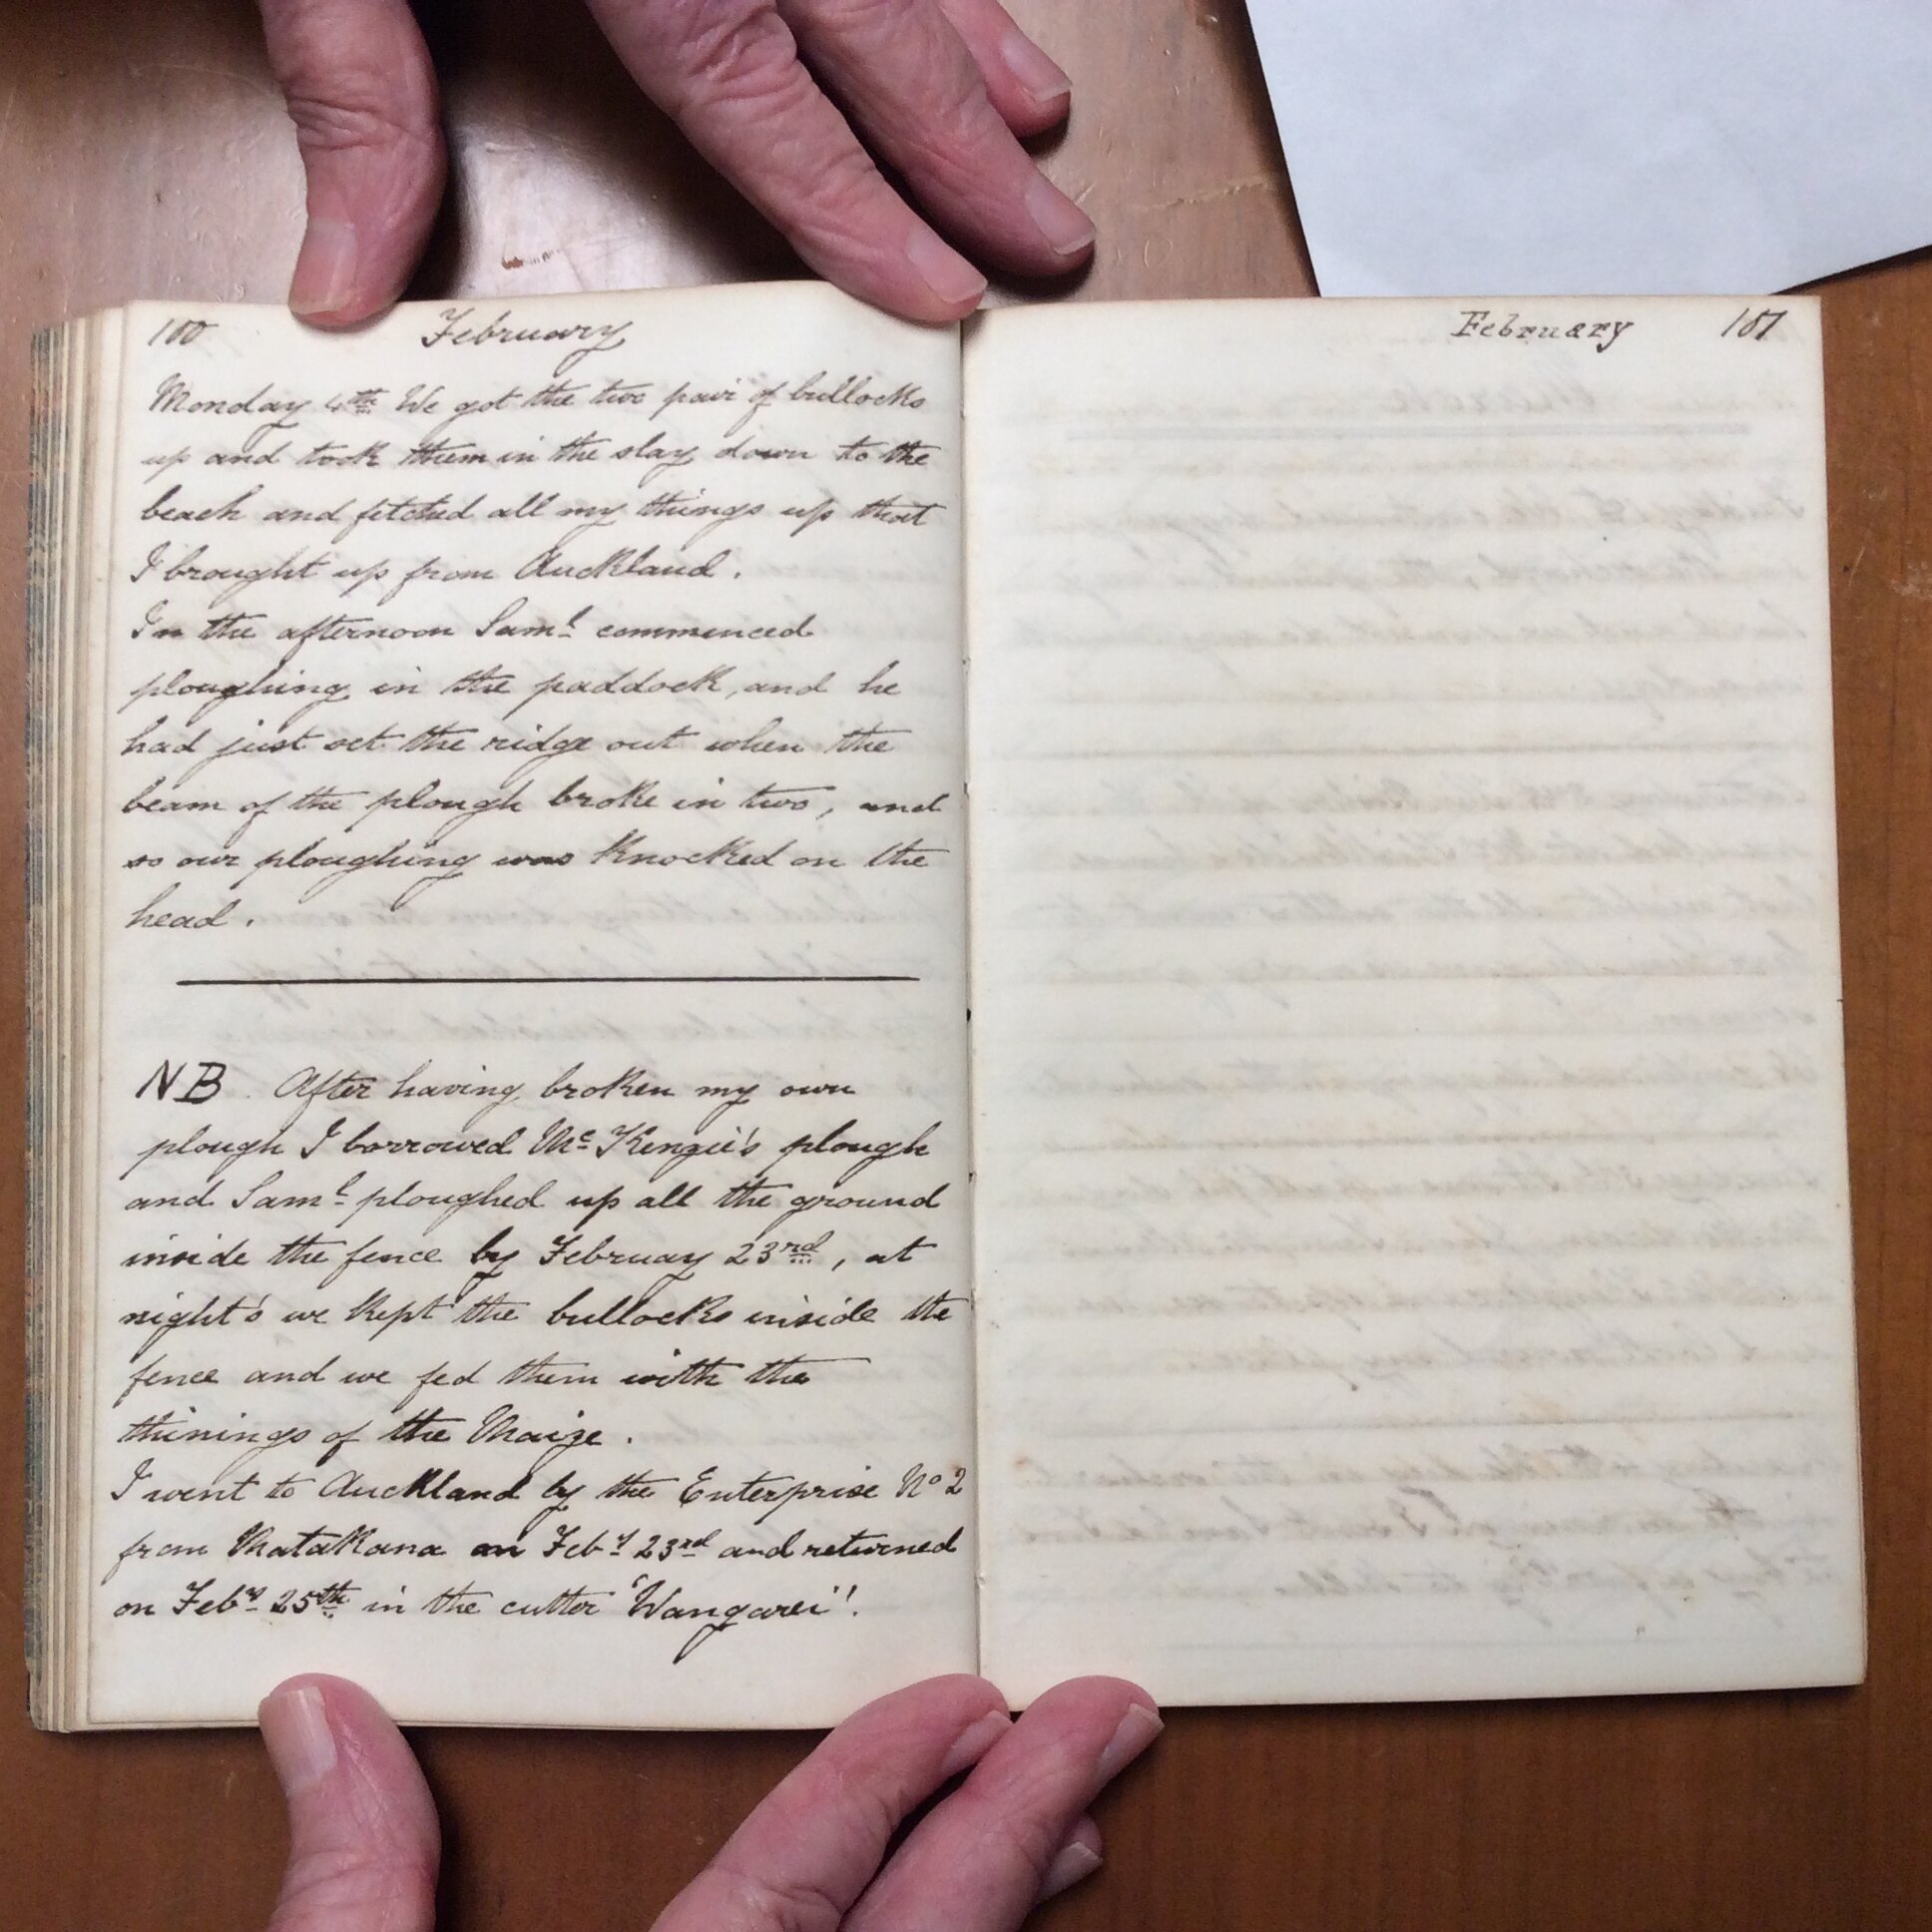 100 February
Monday 4th We got the two pair of bullocks
up and took them in the slay down to the
beach and fetched all my things up that
I brought up from Auckland.
In the afternoon Saml commenced
ploughing in the paddock, and he
had just set the ridge out when the
beam of the plough broke in two, and
so our ploughing was knocked on the
head.
NB. After having broken my own
plough I borrowed Mc Kenzie's plough
and Saml ploughed up all the ground
inside the fence by February 23rd, at
night's we kept the bullocks inside the
fence and we fed them with the
thinings of the Maize.
I went to Auckland by the Enterprise No 2
from Matakana on Feby 23rd and returned
on Feby 25th in the cutter 'Wangarei'.
February 101